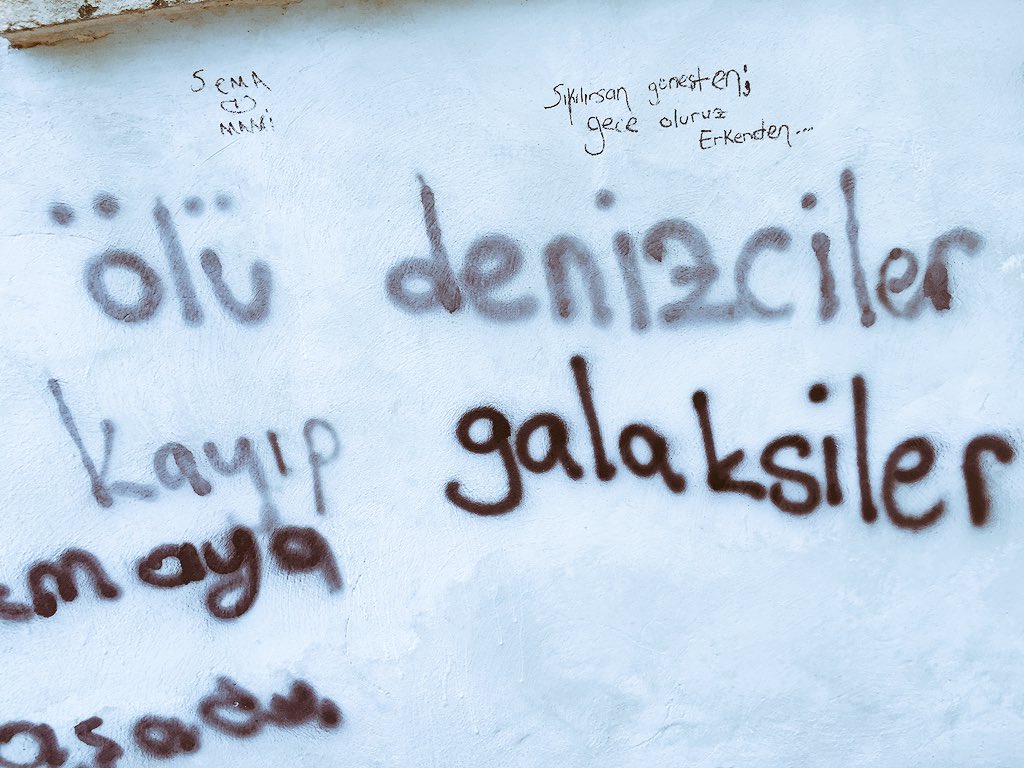 SEMA
MAMi
Sıkılırsan güneşten;
gece oluruz
Erkenden...
ölü denizciler
kayıp galaksiler
maya